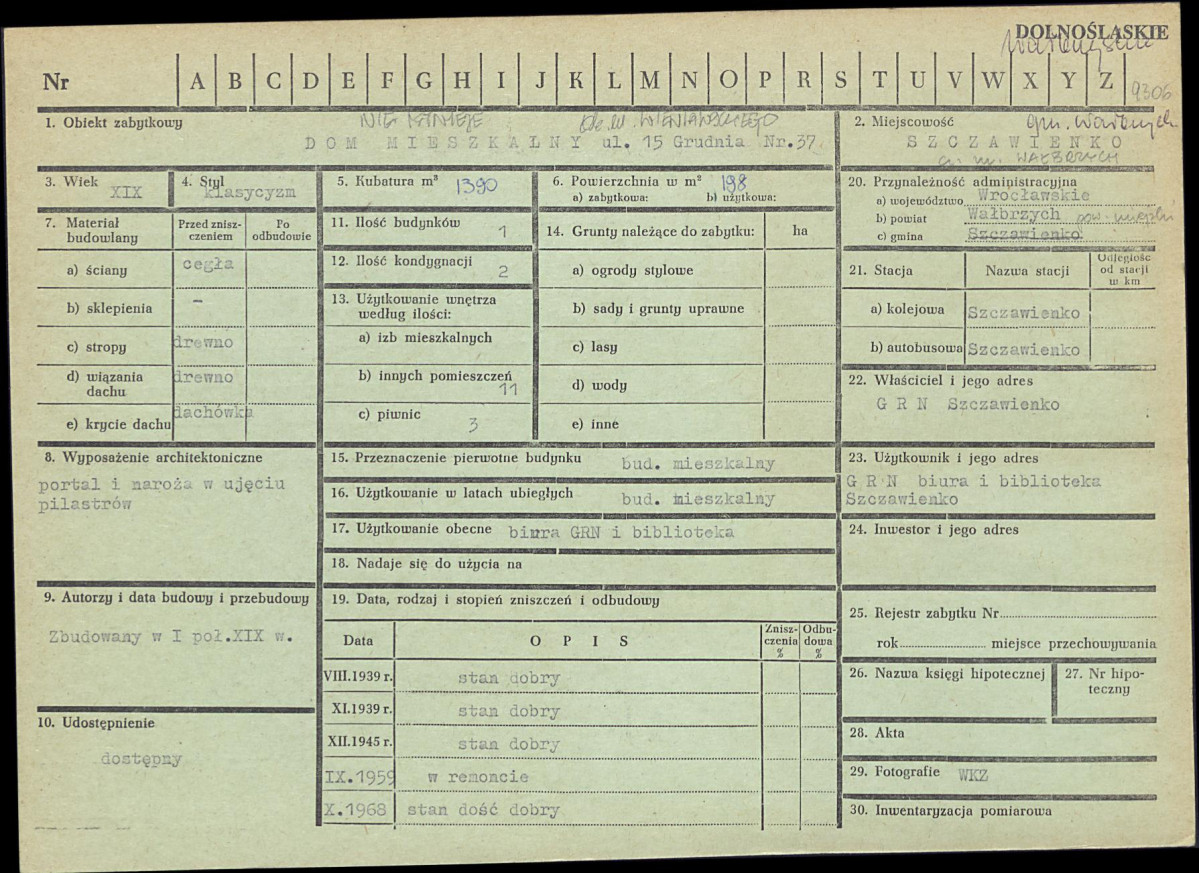 DOLNOŚLĄSKIE
Nr A B C D E F G H I J K L M N O P R S T U V W X Y Z 9306
1. Obiekt zabytkowy
NIE ISTNIEJE ob. ul. WIENIAWSKIEGO
DOM MIESZKALNY ul. 15 Grudnia Nr.37
2. Miejscowość gm. Wałbrzych
SZCZAWIENKO
WAŁBRZYCH
3. Wiek
XIX
4. Styl
klasycyzm
5. Kubatura m³ 1390
6. Powierzchnia w m² 198
a) zabytkowa: b) użytkowa:
20. Przynależność administracyjna
a) województwo Wrocławskie
b) powiat Wałbrzych pow. miejski
c) gmina Szczawienko
7. Materiał budowlany
Przed znisz-
czeniem
Po
odbudowie
a) ściany cegła
b) sklepienia -
c) stropy drewno
d) wiązania
dachu drewno
e) krycie dachu dachówka
11. Ilość budynków 1
12. Ilość kondygnacji 2
13. Użytkowanie wnętrza
według ilości:
a) izb mieszkalnych
b) innych pomieszczeń
11
c) piwnic 3
14. Grunty należące do zabytku: ha
a) ogrody stylowe
b) sady i grunty uprawne
c) lasy
d) wody
e) inne
21. Stacja Nazwa stacji
Odległość
od stacji
w km
a) kolejowa Szczawienko
b) autobusowa Szczawienko
22. Właściciel i jego adres
G R N Szczawienko
8. Wyposażenie architektoniczne
portal i naroża w ujęciu
pilastrów
15. Przeznaczenie pierwotne budynku bud. mieszkalny
16. Użytkowanie w latach ubiegłych bud. mieszkalny
17. Użytkowanie obecne biura GRN i biblioteka
18. Nadaje się do użycia na
23. Użytkownik i jego adres
G R N biura i biblioteka
Szczawienko
24. Inwestor i jego adres
9. Autorzy i data budowy i przebudowy
Zbudowany w I poł.XIX w.
10. Udostępnienie
dostępny
19. Data, rodzaj i stopień zniszczeń i odbudowy
Data OPIS
Znisz-
czenia
%
Odbu-
dowa
%
VIII.1939 r. stan dobry
XI.1939 r. stan dobry
XII.1945 r. stan dobry
IX.1959 w remoncie
X.1968 stan dość dobry
25. Rejestr zabytku Nr
rok miejsce przechowywania
26. Nazwa księgi hipotecznej
27. Nr hipo-
teczny
28. Akta
29. Fotografie WKZ
30. Inwentaryzacja pomiarowa